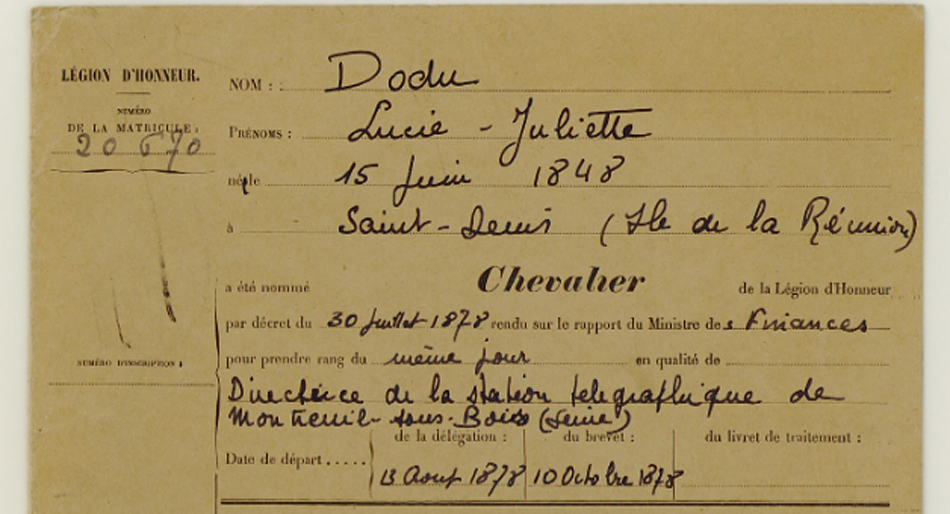 LÉGION D'HONNEUR.
NUMÉRO
DE LA MATRICULE :
20 670
NOM : : Dodu
PRÉNOMS : Lucie - Juliette
née le 15 Juin 1848
à Saint-Denis (Ile de la Réunion)
a été nommé Chevalier de la Légion d'Honneur
par décret du 30 Juillet 1878 rendu sur le rapport du Ministre des Finances
NUMÉRO D'INSCRIPTION :
pour prendre rang du même jour en qualité de
Directrice de la station télégraphique de
Montreuil-sous-Bois (Seine)
de la délégation : du brevet : du livret de traitement :
Date de départ..... 13 Aout 1878 10 Octobre 1878